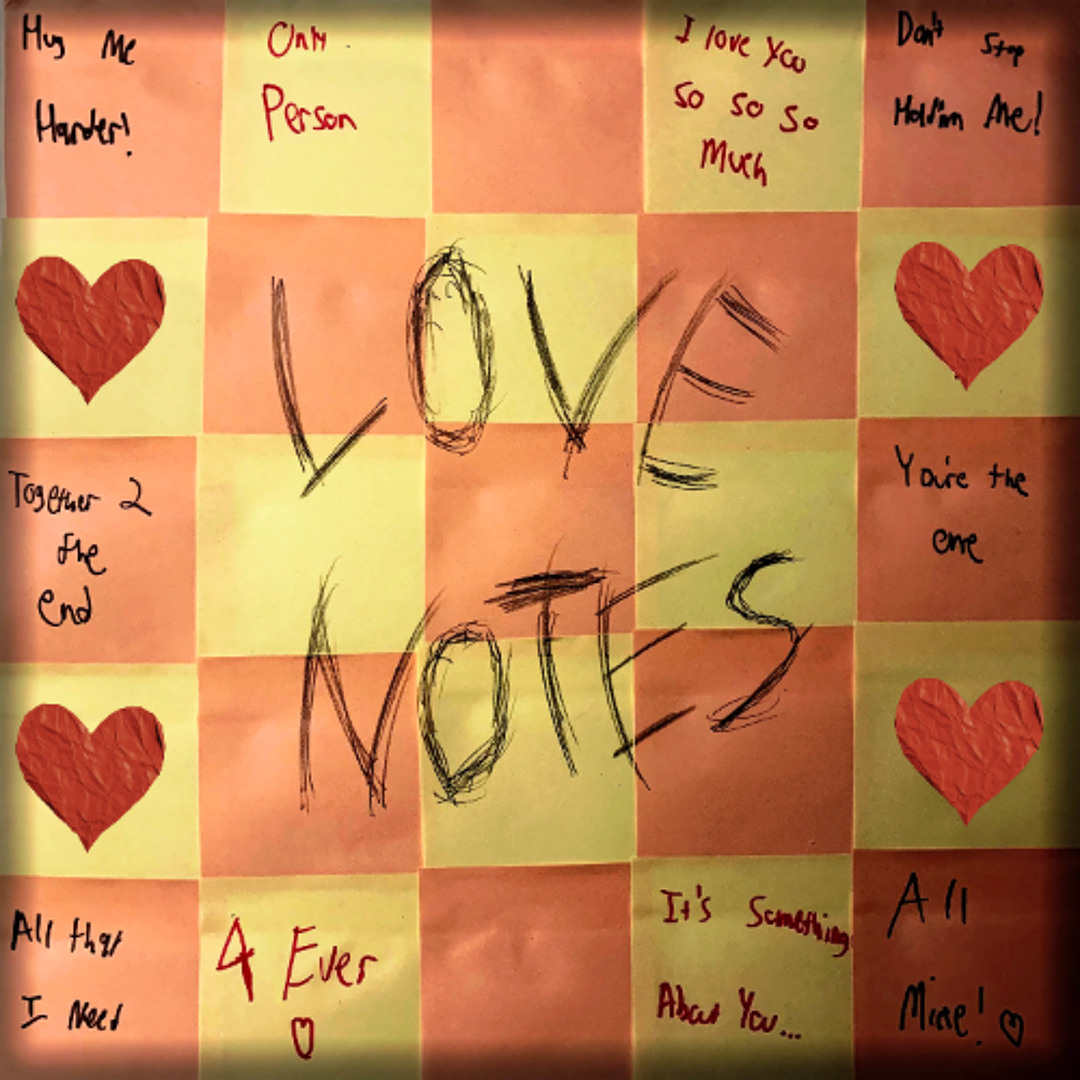 Hug Me
Harder!
Only
Person
I love you
so so so
Much
Don't Stop
Holdin Me!
LOVE
Together 2
the
end
You're the
one
NOTES
All that
I Need
4 Ever
It's Something
About You...
All
Mine!